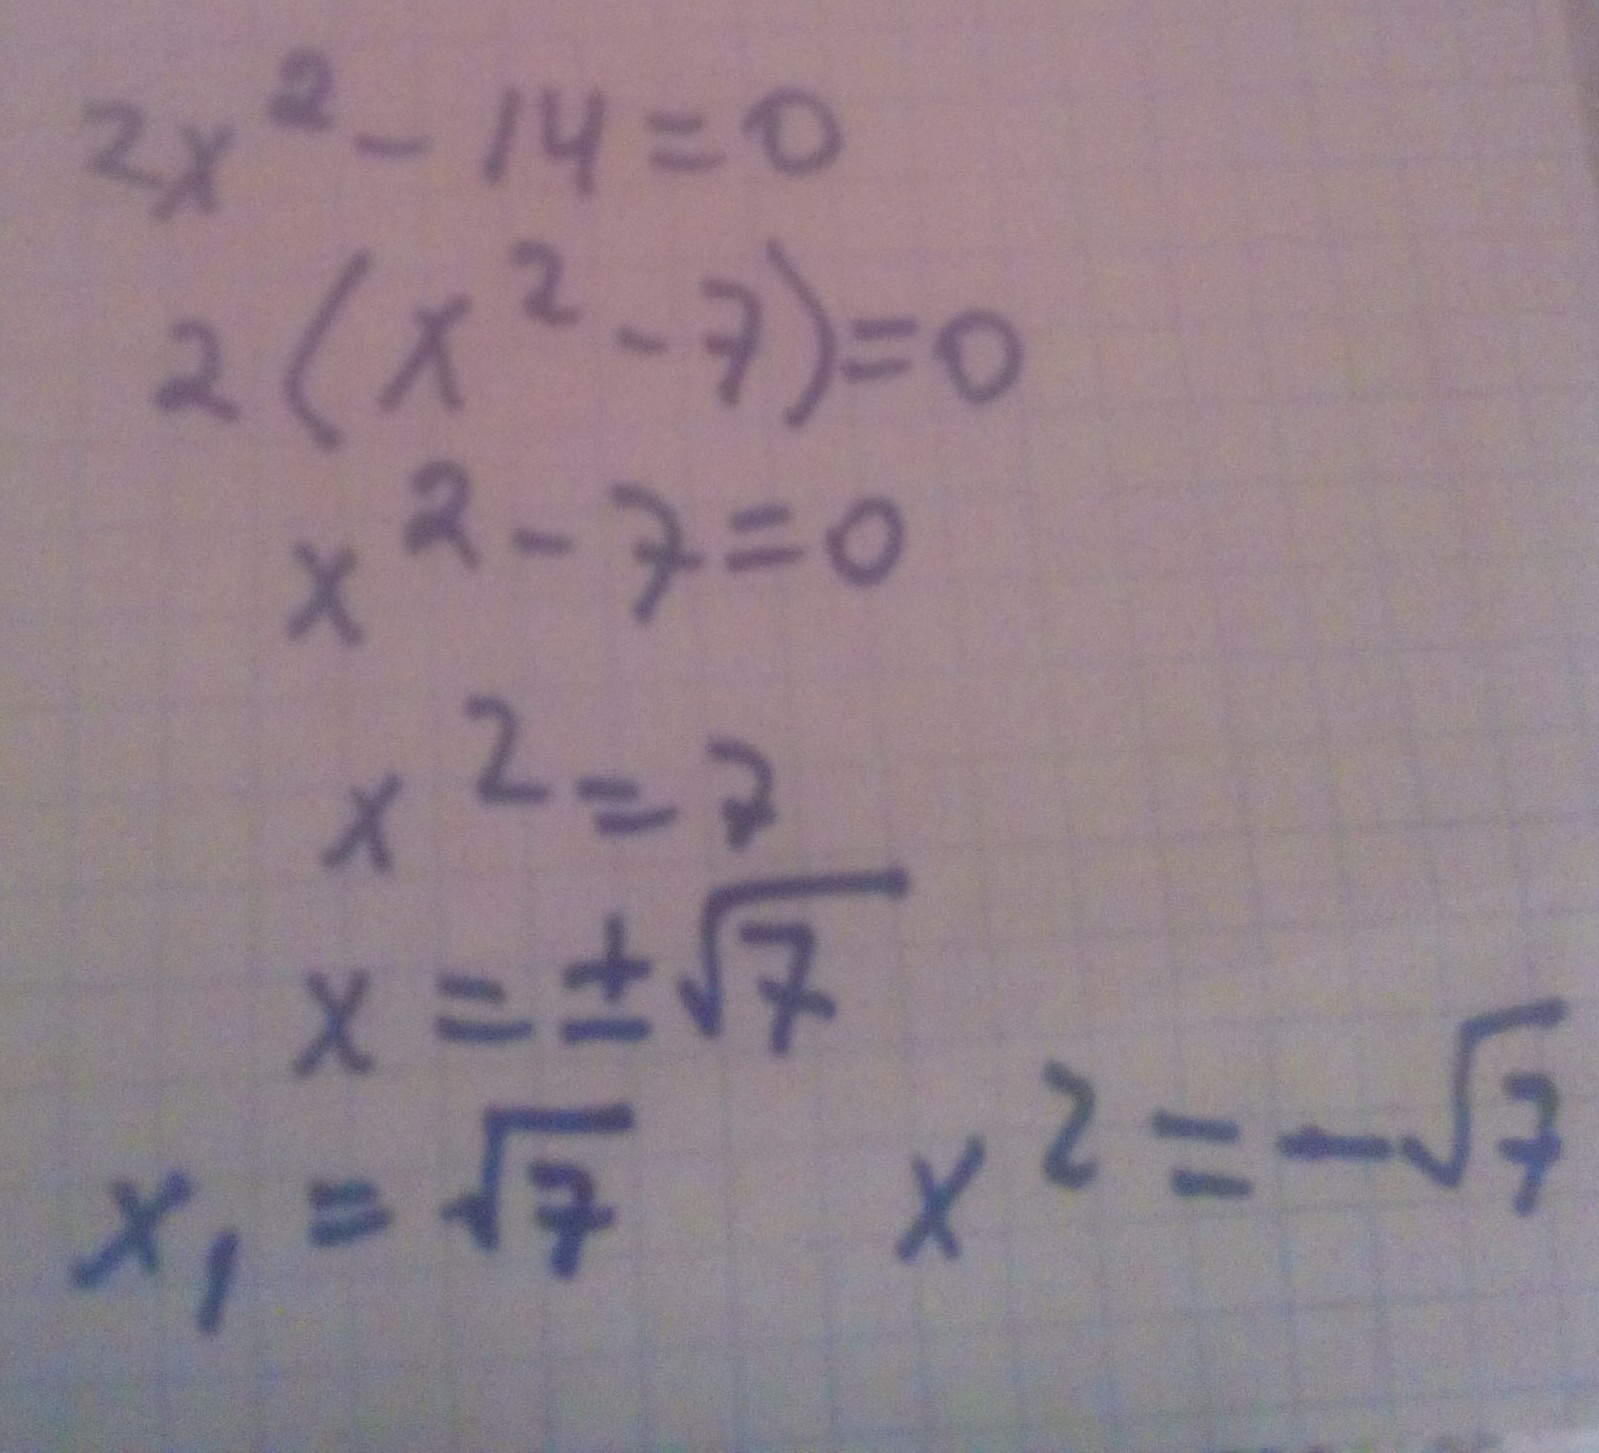 2x² - 14 = 0
2(x² - 7) = 0
x² - 7 = 0
x² = 7
x = ±√7
x₁ = √7 x² = -√7